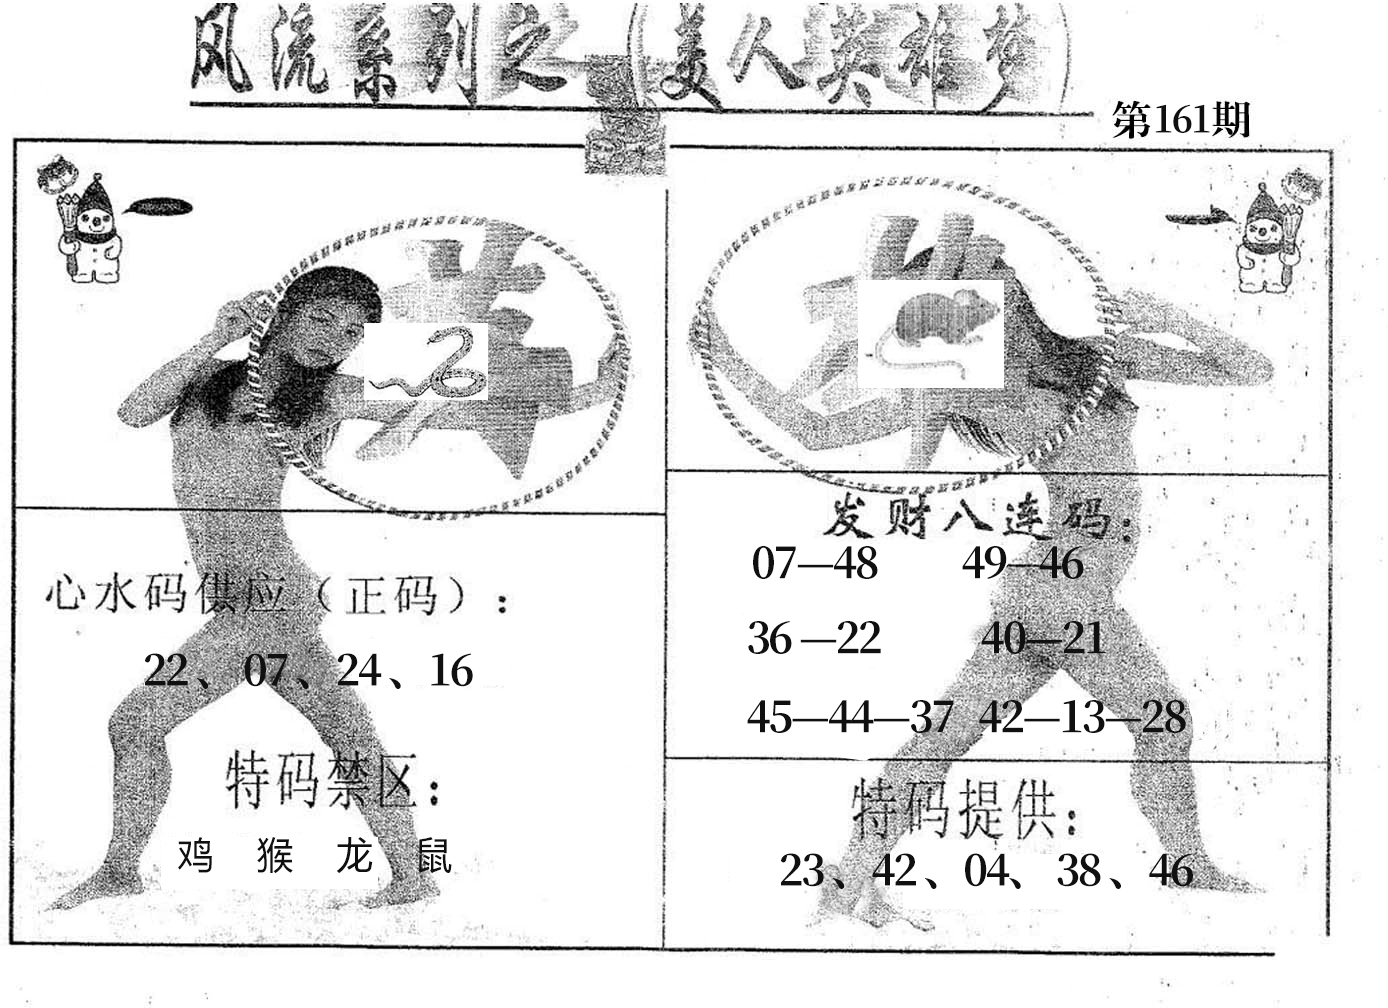 风流系列之 美人英雄梦
第161期
心水码供应（正码）:
22、07、24、16
特码禁区:
鸡 猴 龙 鼠
发财八连码:
07—48 49—46
36—22 40—21
45—44—37 42—13—28
特码提供:
23、42、04、38、46